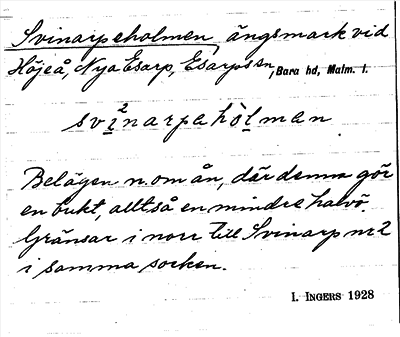 Svinarpeholmen, ängsmark vid
Höjeå, Nya Esarp, Esarps sn, Bara hd, Malm. l.
svi²narpahòlman
Belägen n. om ån, där denna gör
en bukt, alltså en mindre halvö.
Gränsar i norr till Svinarp nr 2
i samma socken.
I. INGERS 1928